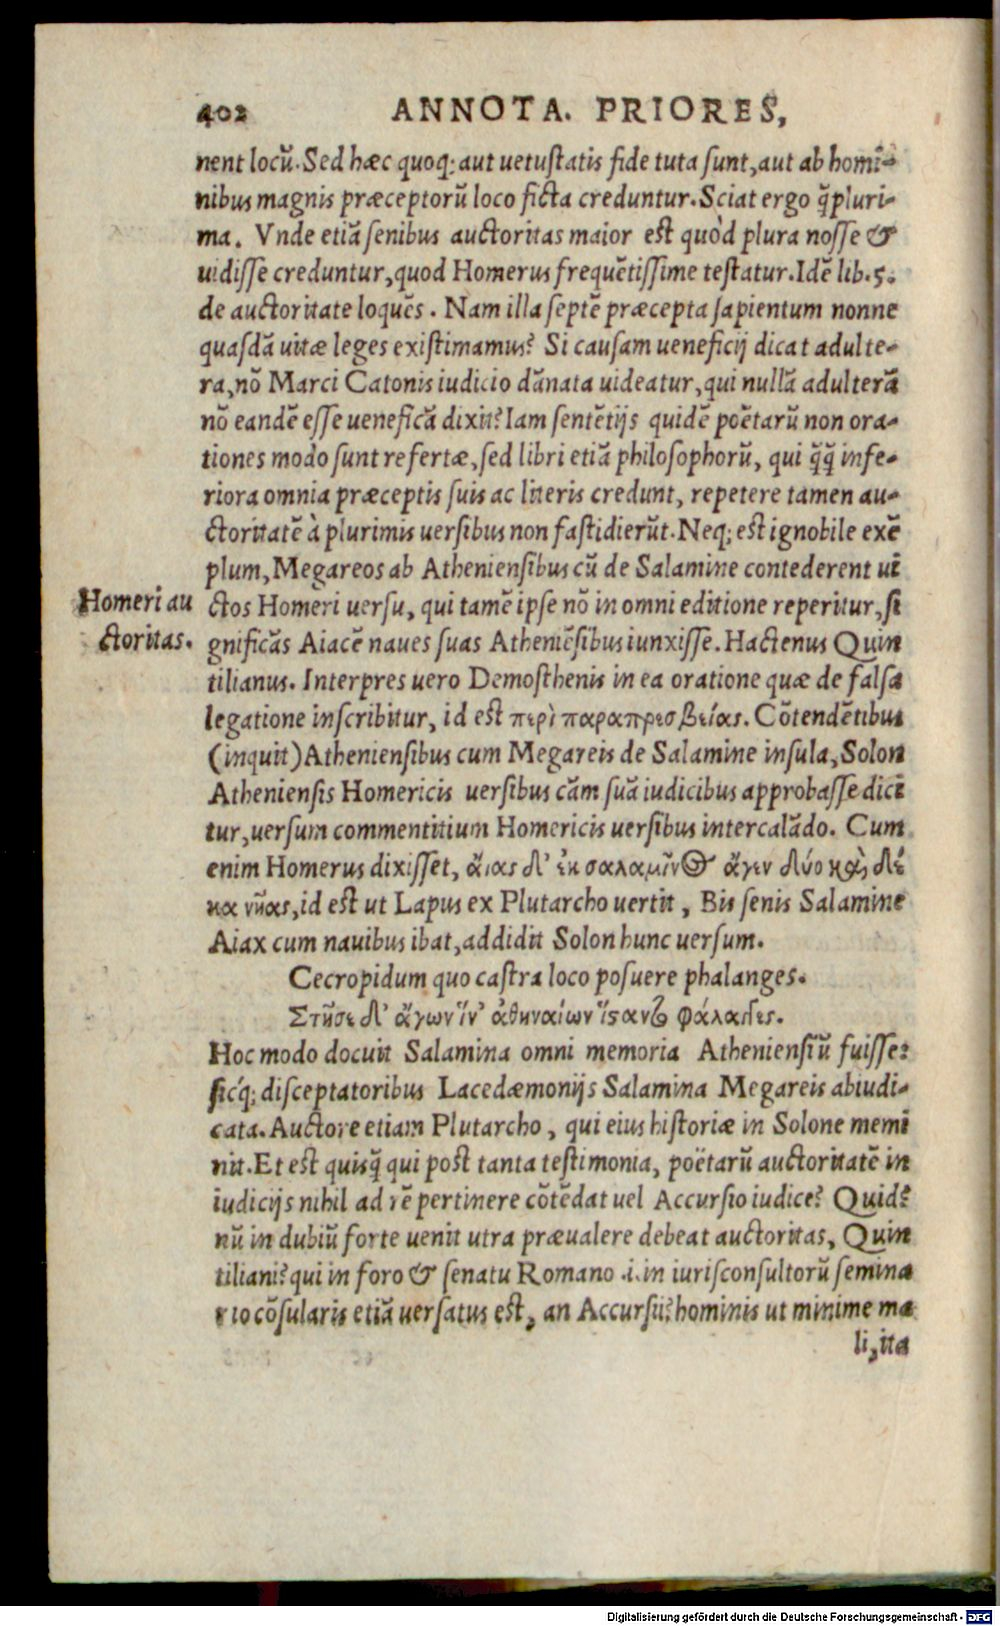 402 ANNOTA. PRIORES,
nent locū. Sed hæc quoq; aut uetustatis fide tuta sunt, aut ab homi-
nibus magnis præceptorū loco ficta creduntur. Sciat ergo q̄pluri-
ma. Vnde etiā senibus auctoritas maior est quòd plura nosse &
uidisse creduntur, quod Homerus frequētissime testatur. Idē lib. 5.
de auctoritate loquēs. Nam illa septē præcepta sapientum nonne
quasdā uitæ leges existimamus? Si causam ueneficij dicat adulte-
ra, nō Marci Catonis iudicio dānata uideatur, qui nullā adulterā
nō eandē esse ueneficā dixit? Iam sentētijs quidē poëtarū non ora-
tiones modo sunt refertæ, sed libri etiā philosophorū, qui q̄q̄ infe-
riora omnia præceptis suis ac literis credunt, repetere tamen au-
ctoritatē à plurimis uersibus non fastidierūt. Neq; est ignobile exē
plum, Megareos ab Atheniensibus cū de Salamine contederent ui
Homeri au
ctoritas.
ctos Homeri uersu, qui tamē ipse nō in omni editione reperitur, si
gnificās Aiacē naues suas Atheniēsibus iunxisse. Hactenus Quin
tilianus. Interpres uero Demosthenis in ea oratione quæ de falsa
legatione inscribitur, id est περὶ παραπρεσβείας. Cōtendētibus
(inquit) Atheniensibus cum Megareis de Salamine insula, Solon
Atheniensis Homericis uersibus cām suā iudicibus approbasse dici
tur, uersum commentitium Homericis uersibus intercalādo. Cum
enim Homerus dixisset, ἄιας δ' ἐκ σαλαμῖνος ἄγεν δύο καὶ δέ
κα νῆας, id est ut Lapus ex Plutarcho uertit, Bis senis Salamine
Aiax cum nauibus ibat, addidit Solon hunc uersum.
Cecropidum quo castra loco posuere phalanges.
Στῆσε δ' ἄγων ἵν' ἀθηναίων ἵσαντο φάλαγγες.
Hoc modo docuit Salamina omni memoria Atheniensiū fuisse:
sicq́; disceptatoribus Lacedæmonijs Salamina Megareis abiudi-
cata. Auctore etiam Plutarcho, qui eius historiæ in Solone memi
nit. Et est quisq̄ qui post tanta testimonia, poëtarū auctoritatē in
iudicijs nihil ad rē pertinere cōtēdat uel Accursio iudice? Quid?
nū in dubiū forte uenit utra præualere debeat auctoritas, Quin
tiliani? qui in foro & senatu Romano .i. in iurisconsultorū semina
rio cōsularis etiā uersatus est, an Accursii? hominis ut minime ma
li, ita
Digitalisierung gefördert durch die Deutsche Forschungsgemeinschaft - DFG